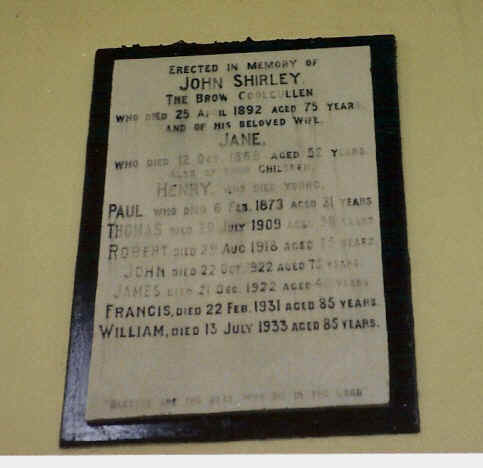 ERECTED IN MEMORY OF
JOHN SHIRLEY,
THE BROW COOLCULLEN
WHO DIED 25 APRIL 1892 AGED 75 YEARS.
AND OF HIS BELOVED WIFE,
JANE,
WHO DIED 12 OCT AGED 52 YEARS.
ALSO OF THEIR CHILDREN,
HENRY, WHO DIED YOUNG,
PAUL WHO DIED 6 FEB. 1873 AGED 21 YEARS
THOMAS DIED JULY 1909 AGED YEARS
ROBERT DIED 29 AUG 1918 AGED YEARS
JOHN DIED 22 OCT. 1922 AGED YEARS.
JAMES DIED 21 DEC. 1922 AGED YEARS
FRANCIS, DIED 22 FEB. 1931 AGED 85 YEARS.
WILLIAM, DIED 13 JULY 1933 AGED 85 YEARS.
"BLESSED ARE THE DEAD WHO DIE IN THE LORD"